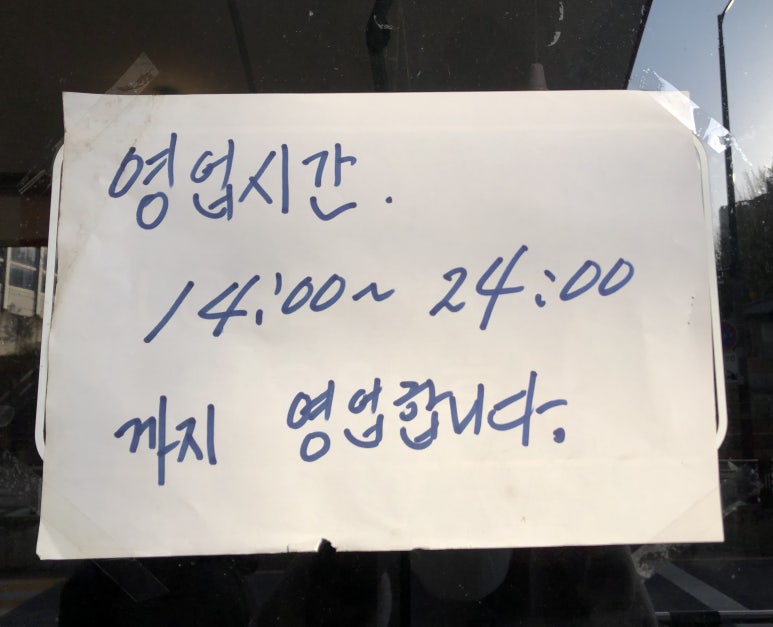 영업시간.
14:00~ 24:00
까지 영업합니다.